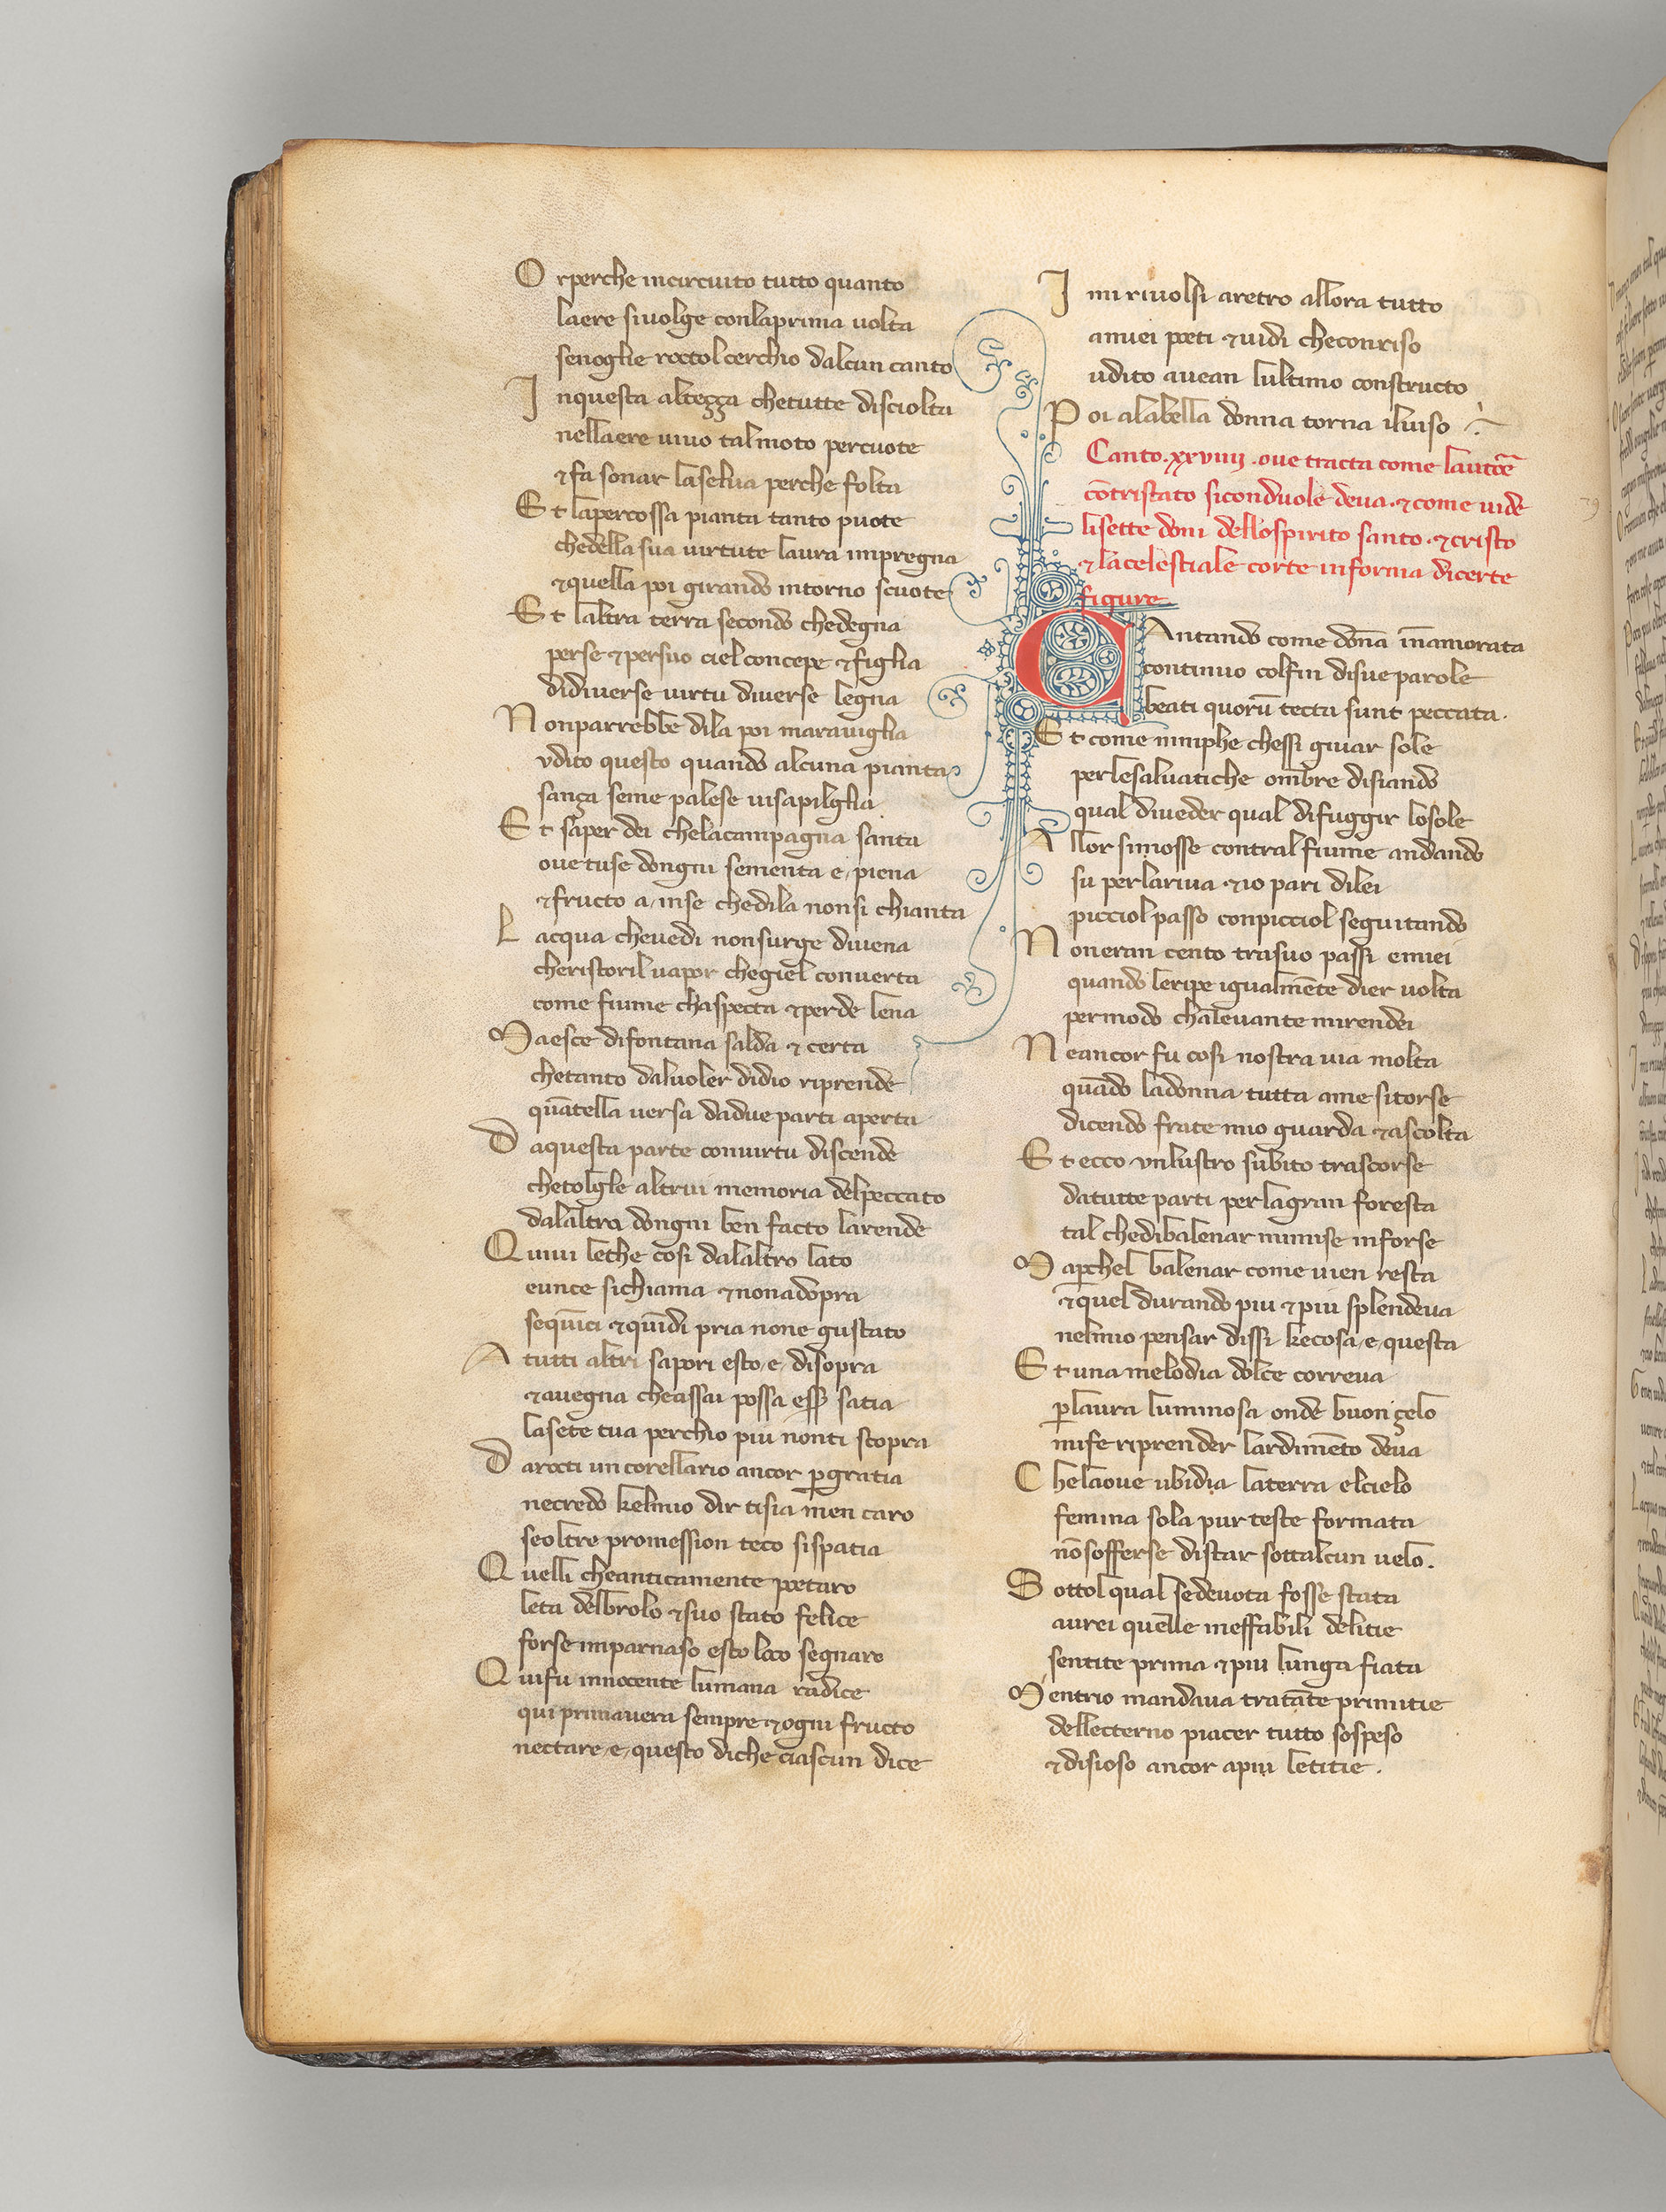 Orperche incircuito tutto quanto
laere siuolge conlaprima uolta
senoglie roctol cerchio dalcun canto
Inquesta altezza chetutte disciolta
nellaere uiuo tal moto percuote
⁊ fa sonar laselua perche folta
Et lapercossa pianta tanto puote
chedella sua uirtute laura impregna
⁊ quella poi girando intorno scuote
Et laltra terra secondo chedegna
perse ⁊ persuo ciel concepe ⁊ figlia
didiuerse uirtu diuerse legna
Nonparrebbe dila poi marauiglia
vdito questo quando alcuna pianta
sança seme palese uisapilglia
Et saper dei chelacampagna santa
oue tuse dongni sementa e piena
⁊ fructo a inse chedila nonsi chianta
Lacqua cheuedi nonsurge diuena
cheristoril uapor chegiel conuerta
come fiume chaspecta ⁊ perde lena
Maesce difontana salda ⁊ certa
chetanto daluoler didio riprende
quātella uersa dadue parti aperta
Daquesta parte conuirtu discende
chetolgle altrui memoria delpeccato
dalaltra dongni ben facto larende
Quiui lethe cosi dalaltro lato
eunoe sichiama ⁊ nonadopra
sequīci ⁊ quīdi pria none gustato
Atutti altri sapori esto e disopra
⁊ auegna cheassai possa esser satia
lasete tua perchio piu nonti scopra
Darocti un corellario ancor ꝑgratia
necredo kelmio dir tisia men caro
seoltre promession teco sispatia
Quelli cheanticamente poetaro
leta delbrolo ⁊ suo stato felice
forse imparnaso esto loco segnaro
Quifu innocente lumana radice
qui primauera sempre ⁊ ogni fructo
nectare e questo diche ciascun dice
Imi riuolsi aretro allora tutto
amiei poeti ⁊ uidi checonriso
udito auean lultimo constructo
Poi alabella donna torna iluiso
Canto .xxviiij. oue tracta come lauctōe
cōtristato siconduole deua. ⁊ come uide
lisette doni dellospirito santo. ⁊ cristo
⁊ lacelestiale corte informa dicerte
figure
CAntando come dōna innamorata
continuo colfin disue parole
beati quorū tecta sunt peccata.
Et come nimphe chessi giuar sole
perlesaluatiche ombre disiando
qual diueder qual difuggir losole
Allor simosse contral fiume andando
su perlariua ⁊ io pari dilei
picciol passo conpicciol seguitando
Noneran cento trasuo passi emiei
quando leripe igualmēte dier uolta
permodo chaleuante mirendei
Neancor fu cosi nostra uia molta
quādo ladonna tutta ame sitorse
dicendo frate mio guarda ⁊ ascolta
Et ecco vnlustro subito trascorse
datutte parti perlagran foresta
tal chedibalenar mimise inforse
Maꝑchel balenar come uien resta
⁊ quel durando piu ⁊ piu splendeua
nelmio pensar dissi kecosa e questa
Et una melodia dolce correua
ꝑlaura luminosa onde buon çelo
mife riprender lardimēto deua
Chelaoue ubidia laterra elcielo
femina sola pur teste formata
nōsofferse distar sottalcun uelo.
Sottol qual sedeuota fosse stata
aurei quelle ineffabili delitie
sentite prima ⁊ piu lunga fiata
Mentrio mandaua tratāte primitie
delletterno piacer tutto sospeso
⁊ disioso ancor apiu letitie.